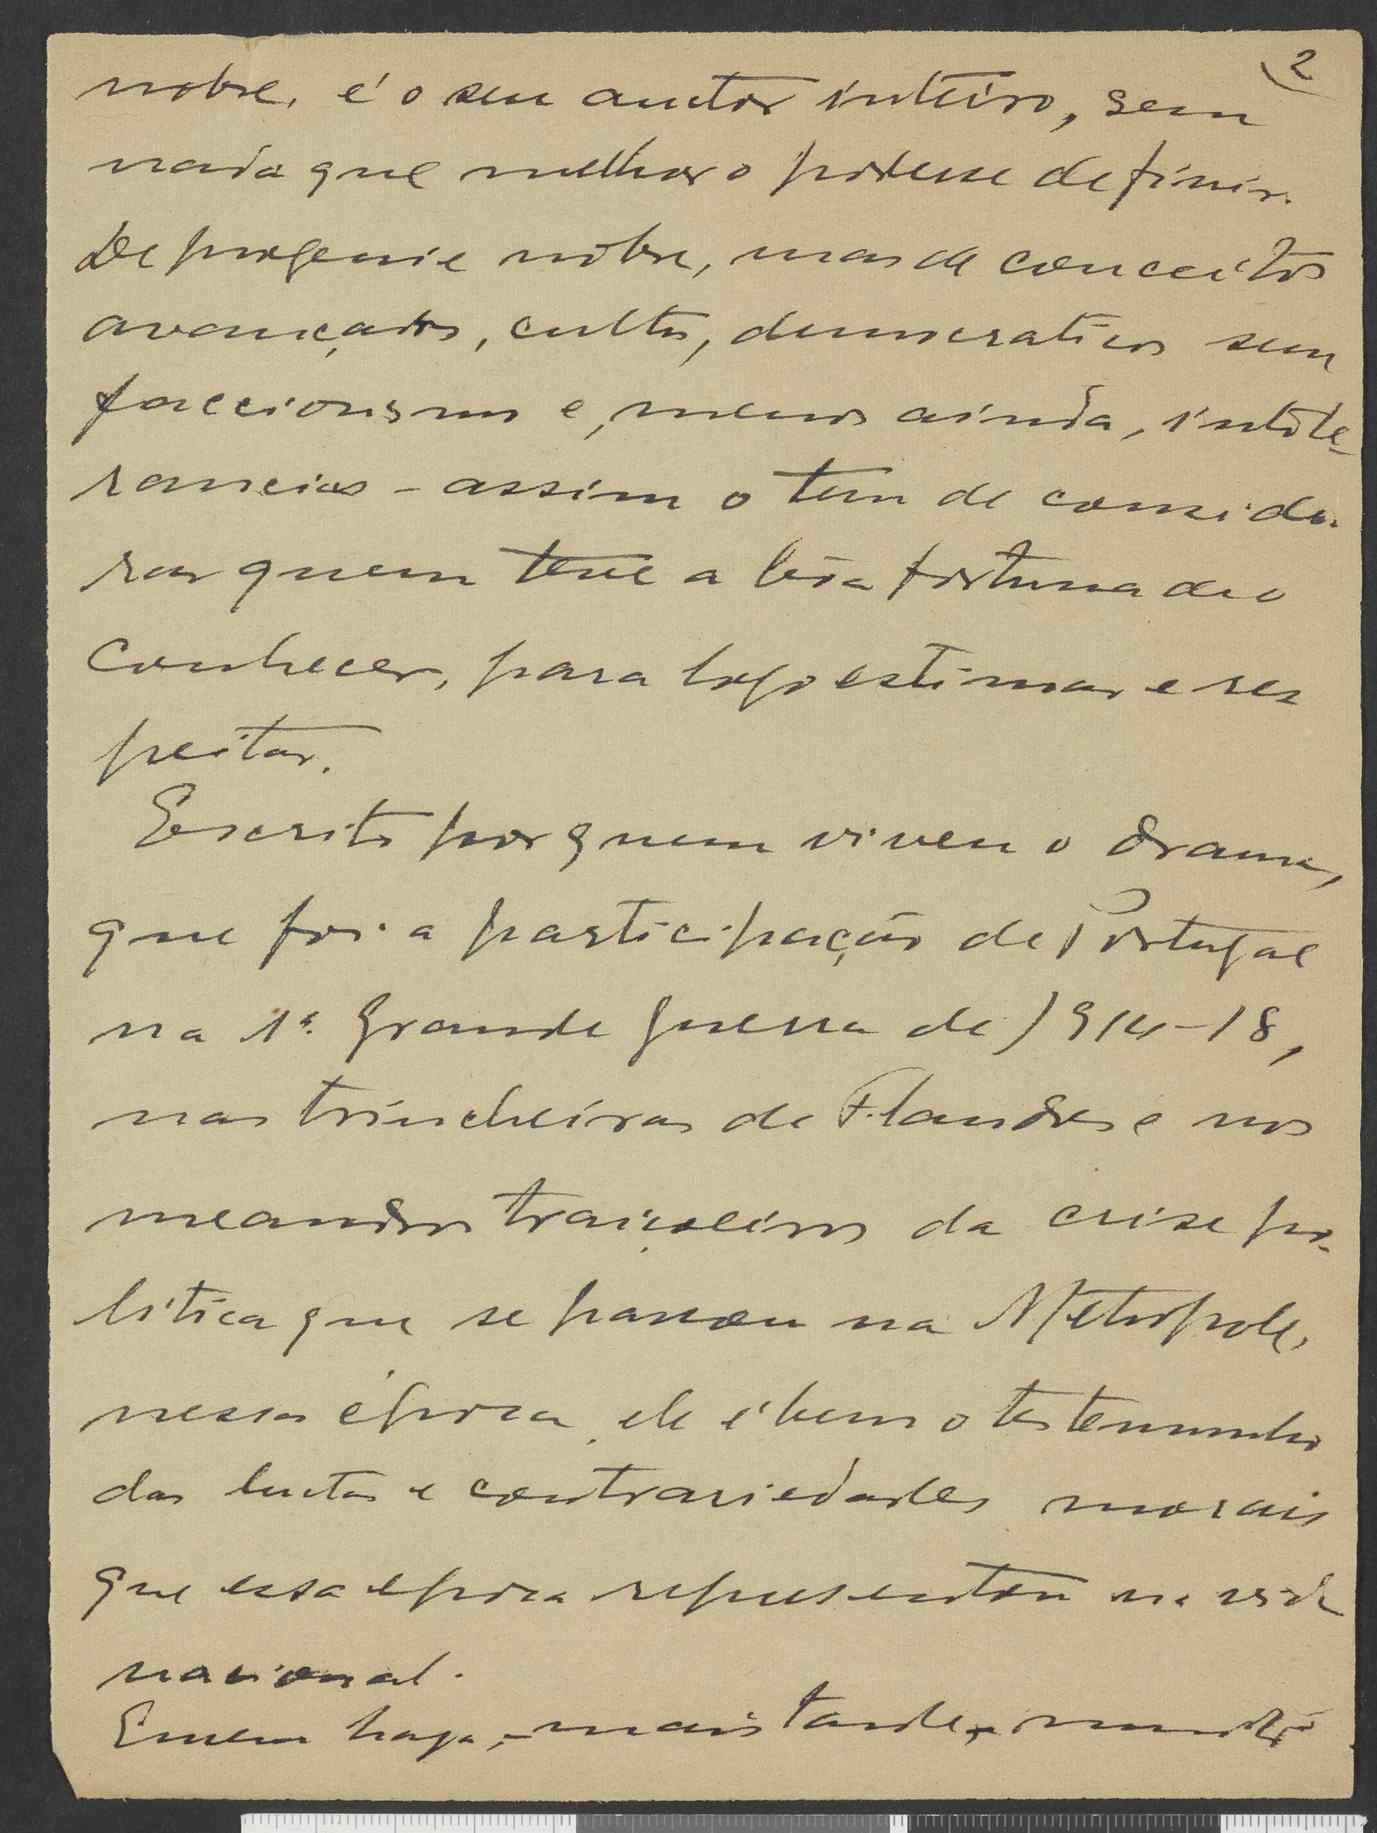 2
nobre, é o seu auctor inteiro, sem
nada que melhor o podesse definir.
De progenie nobre, mas de conceitos
avançados, culto, democratico sem
faccionismo e, menos ainda, intole-
rancias - assim o tem de conside-
rar quem teve a bôa fortuna de o
conhecer, para logo estimar e res
peitar.
Escrito por quem viveu o drama,
que foi a participação de Portugal
na 1ª. grande guerra de 1914-18,
nas trincheiras de Flandres e nos
meandros traiçoeiros da crise po-
litica que se passou na Metropole,
nessa época, ele é bem o testemunho
das luctas e contrariedades morais
que essa epoca representou na vida
nacional.
Quem haja, - mais tarde, -